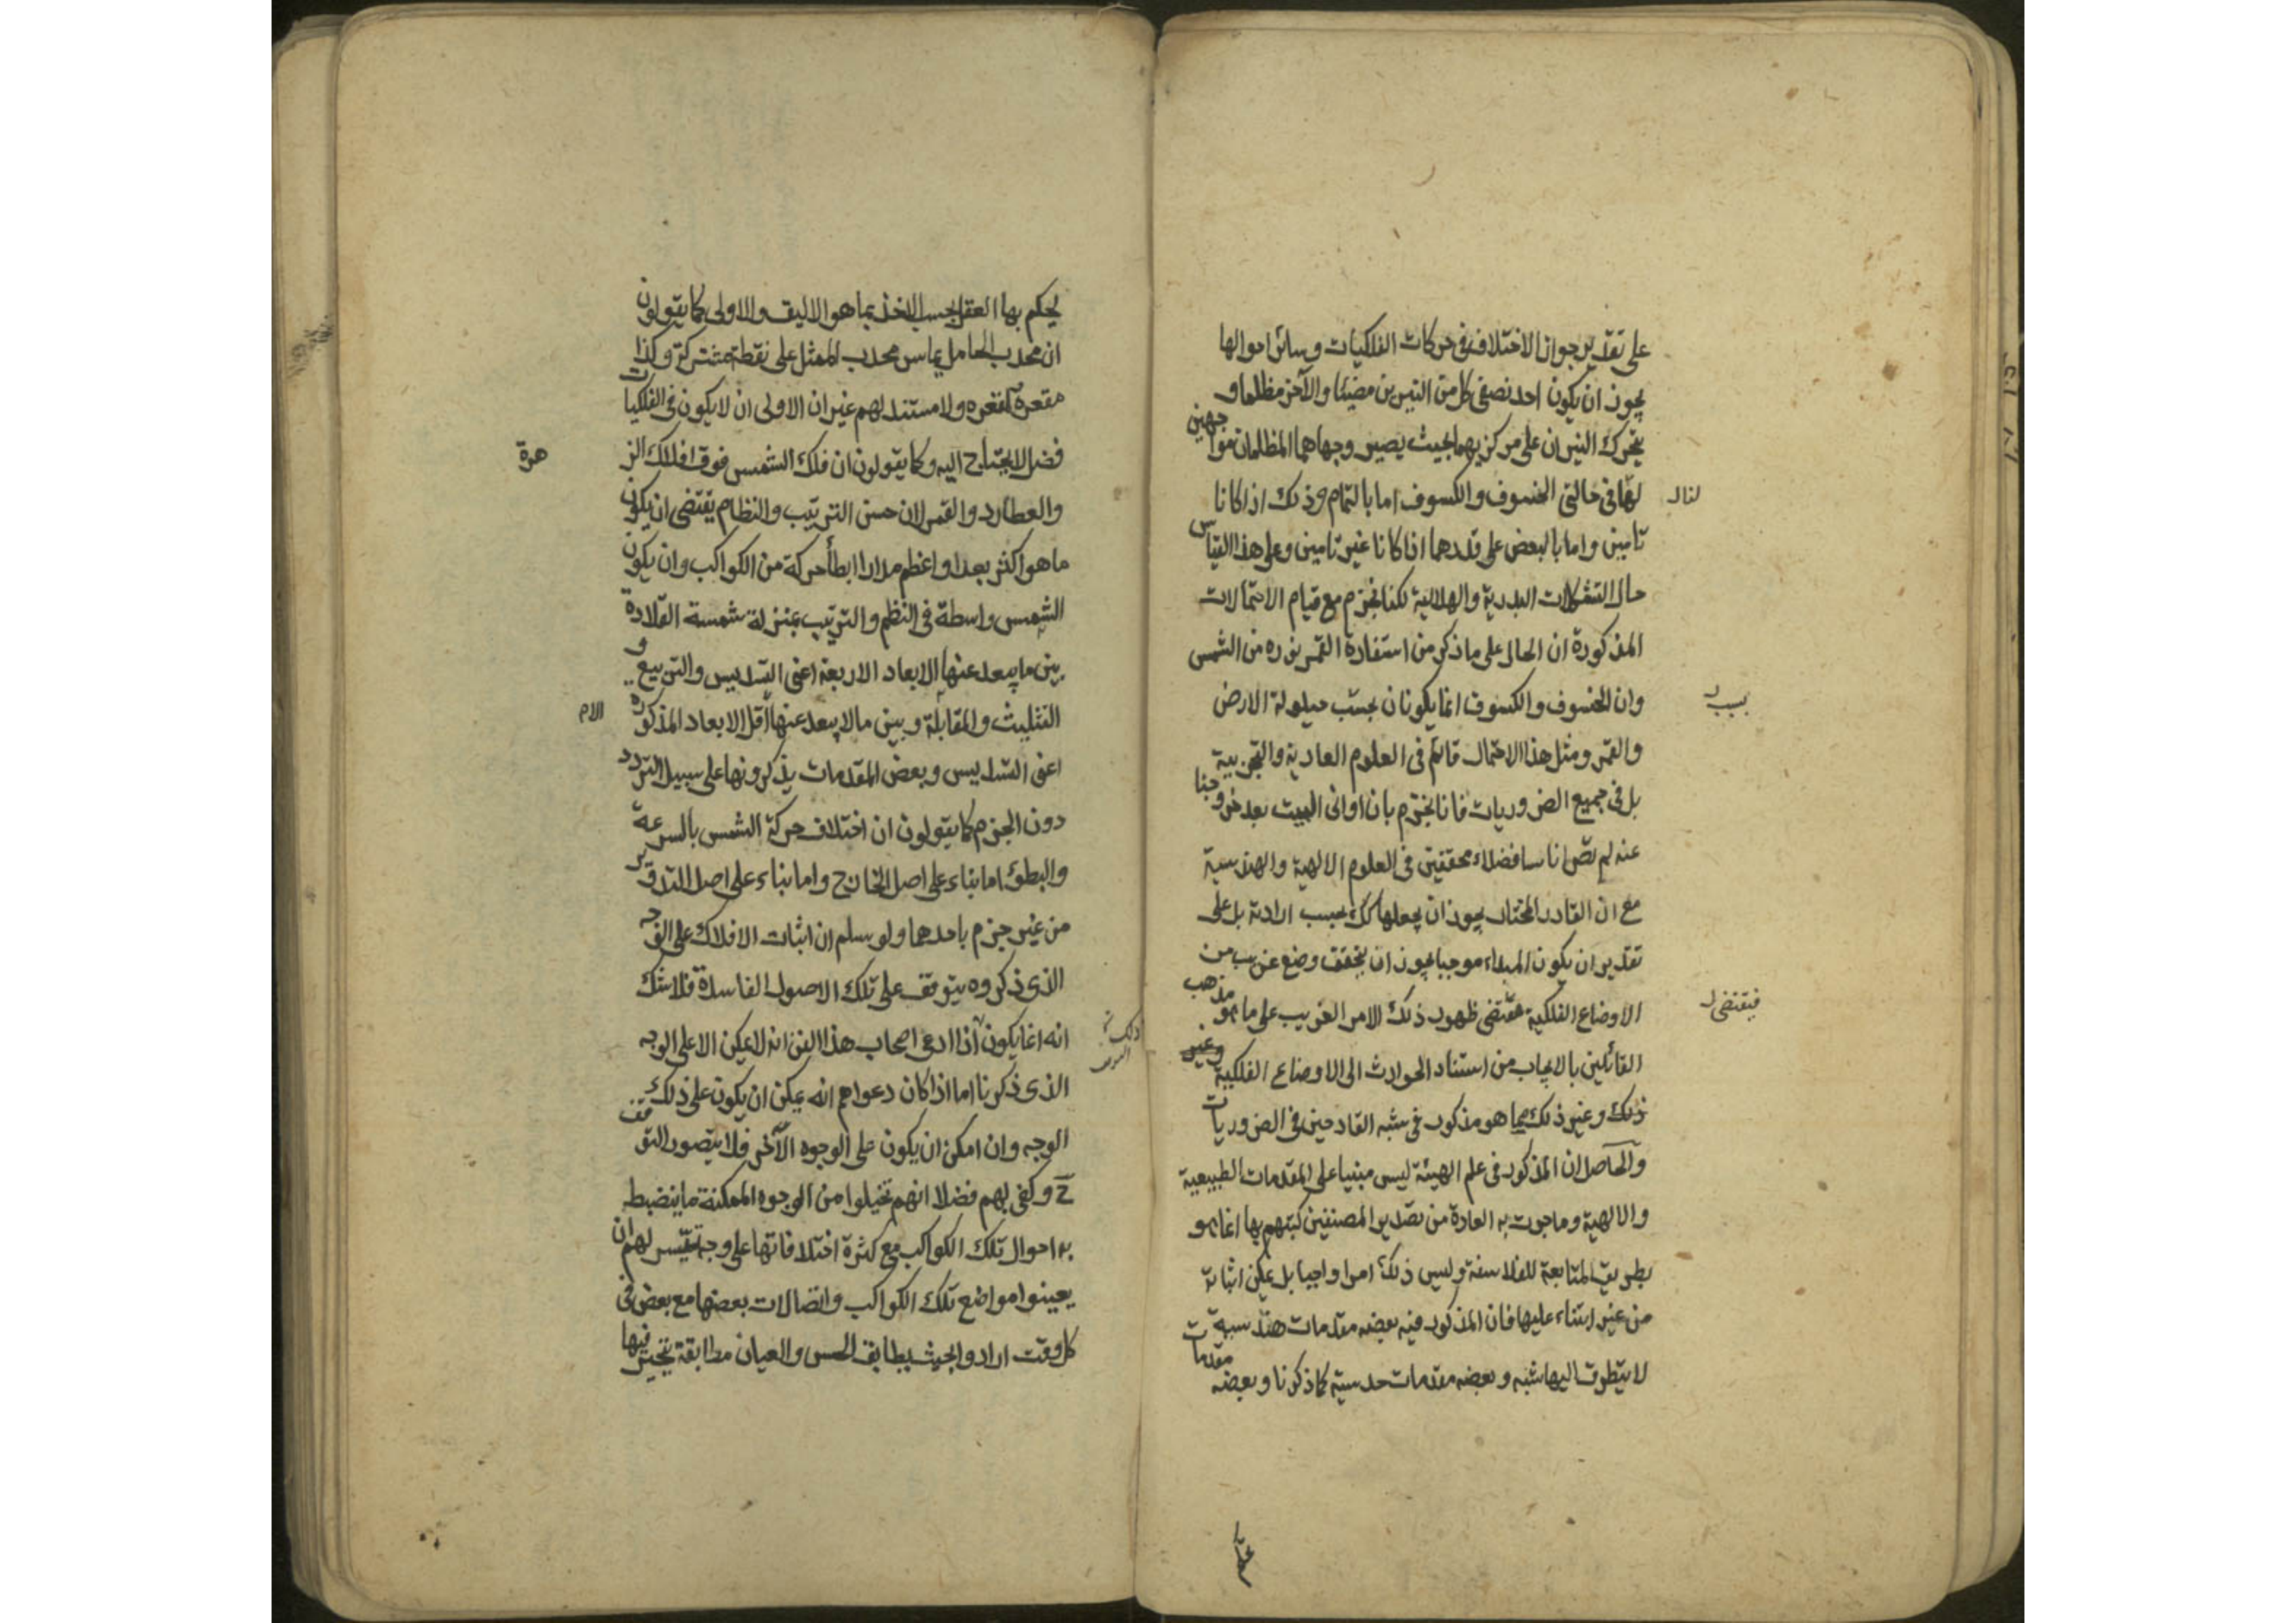 على تقدير جواز الاختلاف فى حركات الفلكيات وسائر احوالها
يجوز ان يكون احد نصفى كل من النيرين مضيئا والآخر مظلما و
يتحرك النيران على مركزيهما بحيث يصير وجهاهما المظلمان مواجهين
لنا فى حالتى الخسوف والكسوف اما بالتمام وذلك اذا كانا
تامين واما بالبعض على قدرهما اذا كانا غير تامين وعلى هذا القياس
حال التشكلات البدرية والهلالية لكنا نجزم مع قيام الاحتمالات
المذكورة ان الحال على ما ذكر من استفادة القمر نوره من الشمس
وان الخسوف والكسوف انما يكونان بسبب حيلولة الارض
والقمر ومثل هذا الاحتمال قائم فى العلوم العادية والتجربية
بل فى جميع الضروريات فانا نجزم بان اوانى البيت بعد خروجنا
عنه لم تصر اناسا فضلاء محققين فى العلوم الالهية والهندسية
مع ان القادر المختار يجوز ان يجعلها كك بحسب ارادته بل على
تقدير ان يكون المبداء موجبا يجوز ان يتحقق وضع غريب من
الاوضاع الفلكية فيقتضى ظهور ذلك الامر الغريب على ما هو مذهب
القائلين بالايجاب من استناد الحوادث الى الاوضاع الفلكية وغير
ذلك وغير ذلك مما هو مذكور فى شبه القادحين فى الضروريات
والحاصل ان المذكور فى علم الهيئة ليس مبنيا على المقدمات الطبيعية
والالهية وما جرت به العادة من تصدير المصنفين كتبهم بها انما هو
بطريق المتابعة للفلاسفة وليس ذلك امرا واجبا بل يمكن اثباته
من غير ابتناء عليها فان المذكور فيه بعضه مقدمات هندسية
لا يتطرق اليها شبه وبعضه مقدمات حدسية كما ذكرنا وبعضه مقدمات
بسبب
فيقتضى
يحكم بها العقل بحسب الاخذ بما هو الاليق والاولى كما يقولون
ان محدب الحامل يماس محدب الممثل على نقطة مشتركة وكذا
مقعره لمقعره ولا مستند لهم غير ان الاولى ان لا يكون فى الفلكيات
فضل لا يحتاج اليه وكما يقولون ان فلك الشمس فوق افلاك الز
هرة
والعطارد والقمر لان حسن الترتيب والنظام يقتضى ان يكون
ما هو اكثر بعدا واعظم مدارا ابطأ حركة من الكواكب وان يكون
الشمس واسطة فى النظم والترتيب بمنزلة شمسة القلادة
بين ما يبعد عنها الابعاد الاربعة اعنى التسديس والتربيع و
التثليث والمقابلة وبين ما لا يبعد عنها اقل الابعاد المذكورة
اعنى التسديس وبعض المقدمات يذكرونها على سبيل التردد
دون الجزم كما يقولون ان اختلاف حركة الشمس بالسرعة
والبطوء اما بناء على اصل الخارج واما بناء على اصل التدوير
من غير جزم باحدهما ولو سلم ان اثبات الافلاك على الوجه
الذى ذكروه يتوقف على تلك الاصول الفاسدة فلا شك
انه انما يكون اذا ادعى اصحاب هذا الفن انه لا يمكن الا على الوجه
الذى ذكرنا اما اذا كان دعواهم انه يمكن ان يكون على ذلك
الوجه وان امكن ان يكون على الوجوه الآخر فلا يتصور التوقف
ح وكفى بهم فضلا انهم تخيلوا من الوجوه الممكنة ما ينضبط
به احوال تلك الكواكب مع كثرة اختلافاتها على وجه تيسر لهم ان
يعينوا مواضع تلك الكواكب واتصالات بعضها مع بعض فى
كل وقت ارادوا بحيث يطابق الحس والعيان مطابقة يتحير فيها